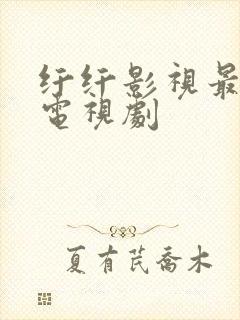 纡纡影視最
電視劇
夏有芪喬木